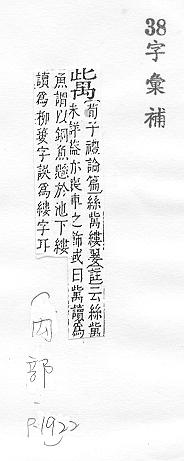 38
字彙補
(荀子禮論篇)絲縷翣(註)云絲
未詳蓋亦喪車之飾或曰讀為
魚謂以銅魚懸於池下縷
讀為柳翣字誤為縷字耳
(禸部.
P.1922